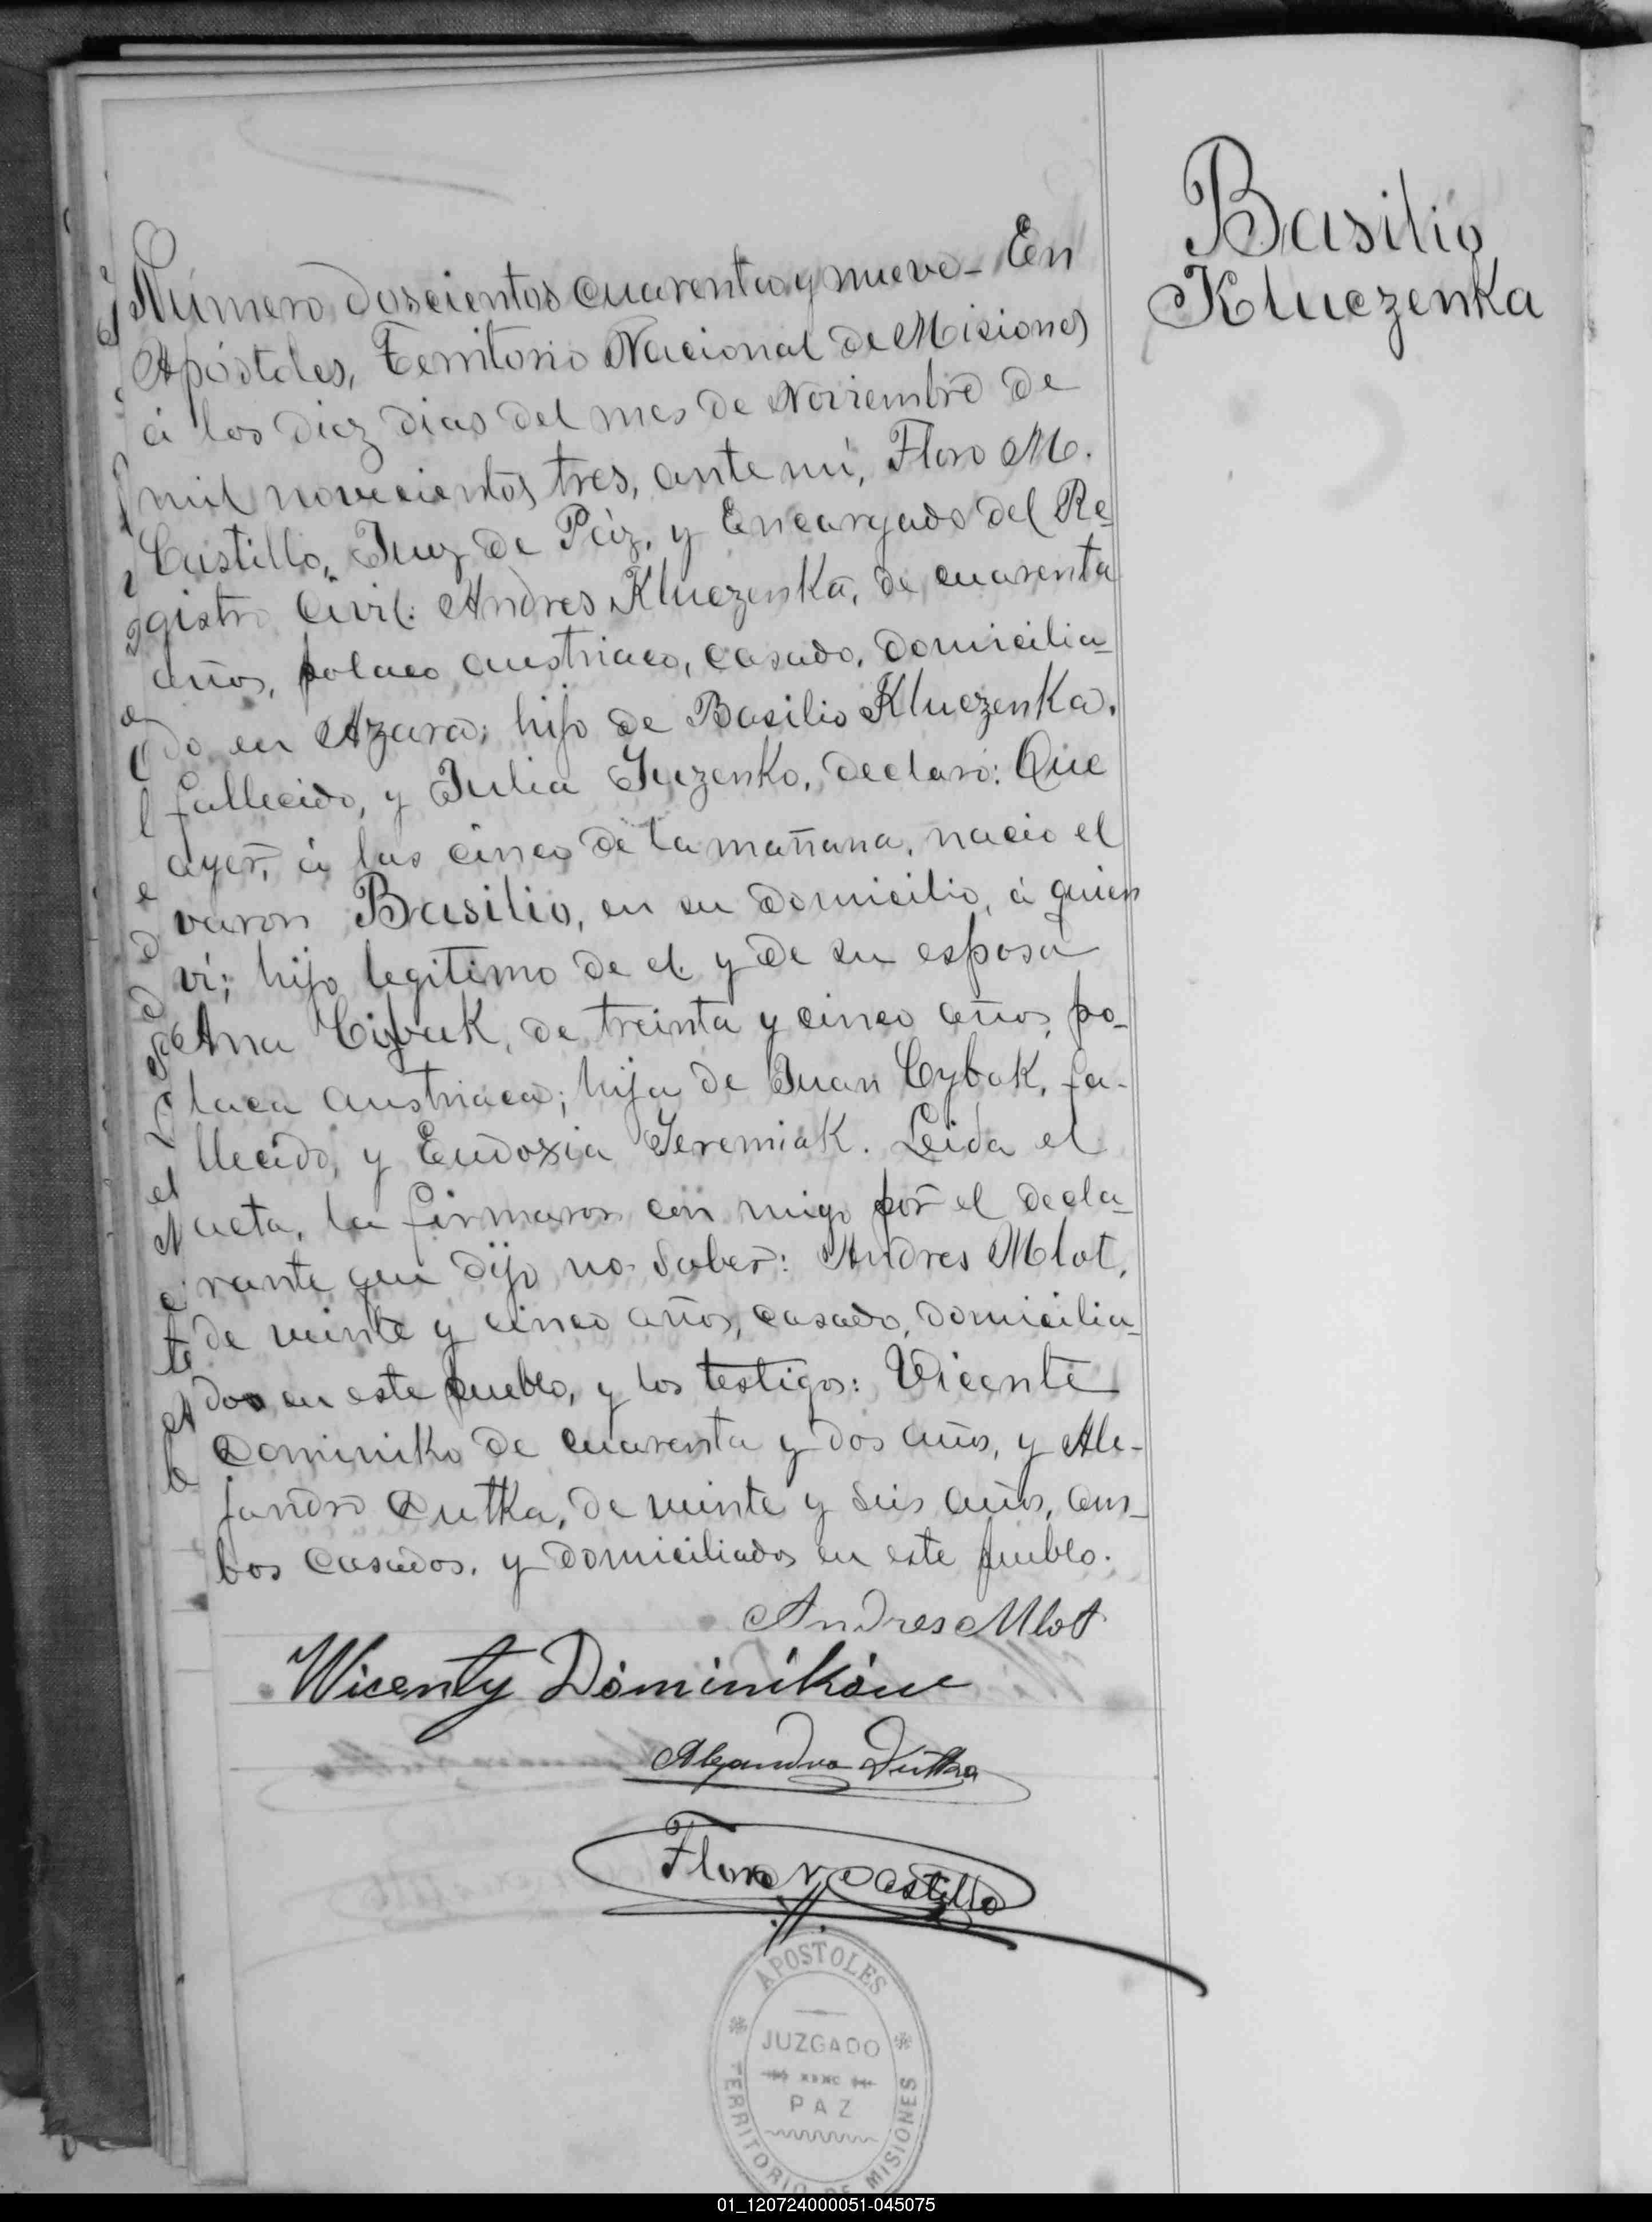 Basilio
Kluczenka
Número doscientos cuarenta y nueve - En
Apóstoles, Territorio Nacional de Misiones
á los diez dias del mes de Noviembre de
mil novecientos tres, ante mi, Floro M.
Castillo, Juez de Páz, y Encargado del Re
gistro Civil: Andres Kluczenka, de cuarenta
años, polaco austriaco, casado, domicilia
do en Azara; hijo de Basilio Kluczenka,
fallecido, y Julia Juzenko, declaró: Que
ayer, á las cinco de la mañana, nació el
varon Basilio, en su domicilio, á quien
ví; hijo legitimo de el y de su esposa
Ana Cybak, de treinta y cinco años, po-
laca austriaca; hija de Juan Cybak, fa-
llecido, y Eudoxia Jeremiak. Leida el
acta, la firmaron con migo por el decla
rante que dijo no saber: Andres Mlot,
de veinte y cinco años, casado, domicilia
do en este pueblo, y los testigos: Vicente
Dominiko de cuarenta y dos años, y Ale-
jandro Dutka, de veinte y seis años, am
bos casados, y domiciliados en este pueblo.
Andres Mlot
Wicenty Dominików
Alejandro Dutka
Floro M Castillo
APOSTOLES
JUZGADO
PAZ
TERRITORIO DE MISIONES
01_120724000051-045075